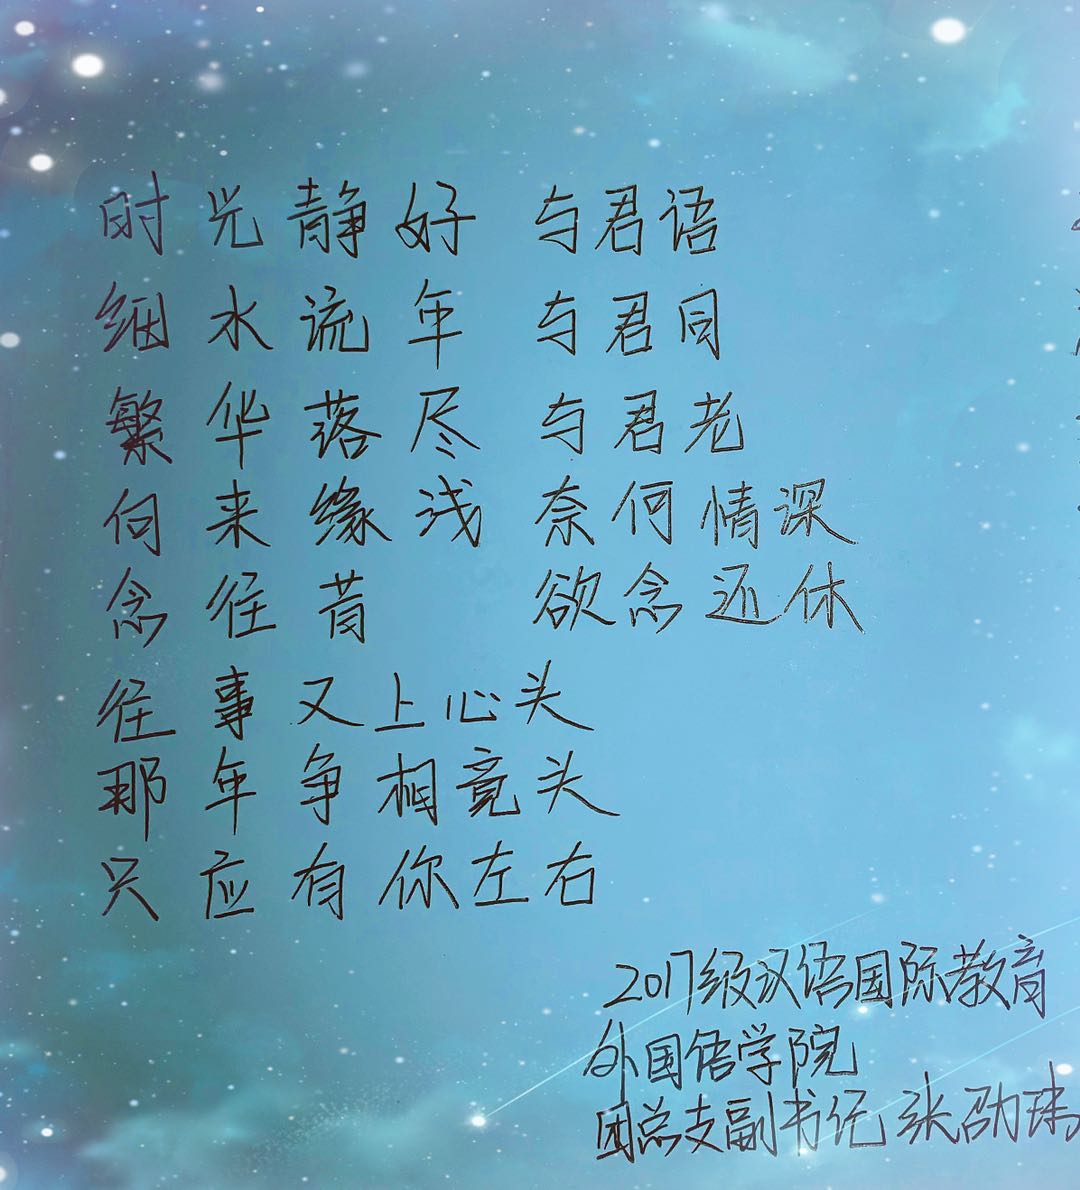 时光静好 与君语
细水流年 与君同
繁华落尽 与君老
向来缘浅 奈何情深
念往昔 欲念还休
往事又上心头
那年争相竟头
只应有你左右
2017级汉语国际教育
外国语学院
团总支副书记 张劭